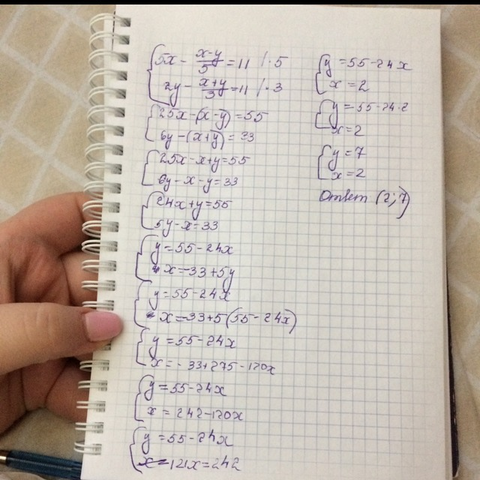 5x - (x-y)/5 = 11 | · 5
2y - (x+y)/3 = 11 | · 3
25x-(x-y)=55
6y-(x+y)=33
25x-x+y=55
6y-x-y=33
24x+y=55
5y-x=33
y=55-24x
x=-33+5y
y=55-24x
x=-33+5(55-24x)
y=55-24x
x=-33+275-120x
y=55-24x
x=242-120x
y=55-24x
121x=242
y=55-24x
x=2
y=55-24·2
x=2
y=7
x=2
Ответ (2;7)